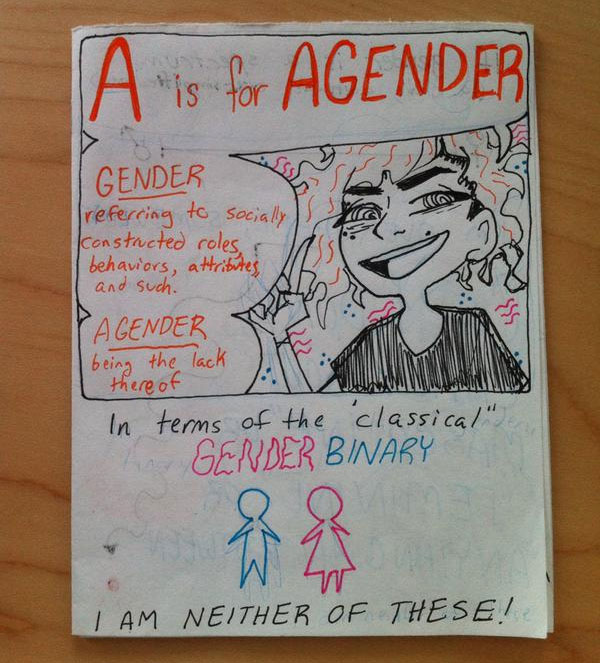 A is for AGENDER
GENDER
referring to socially
constructed roles,
behaviors, attributes,
and such.
AGENDER
being the lack
thereof
In terms of the 'classical"
GENDER BINARY
I AM NEITHER OF THESE!